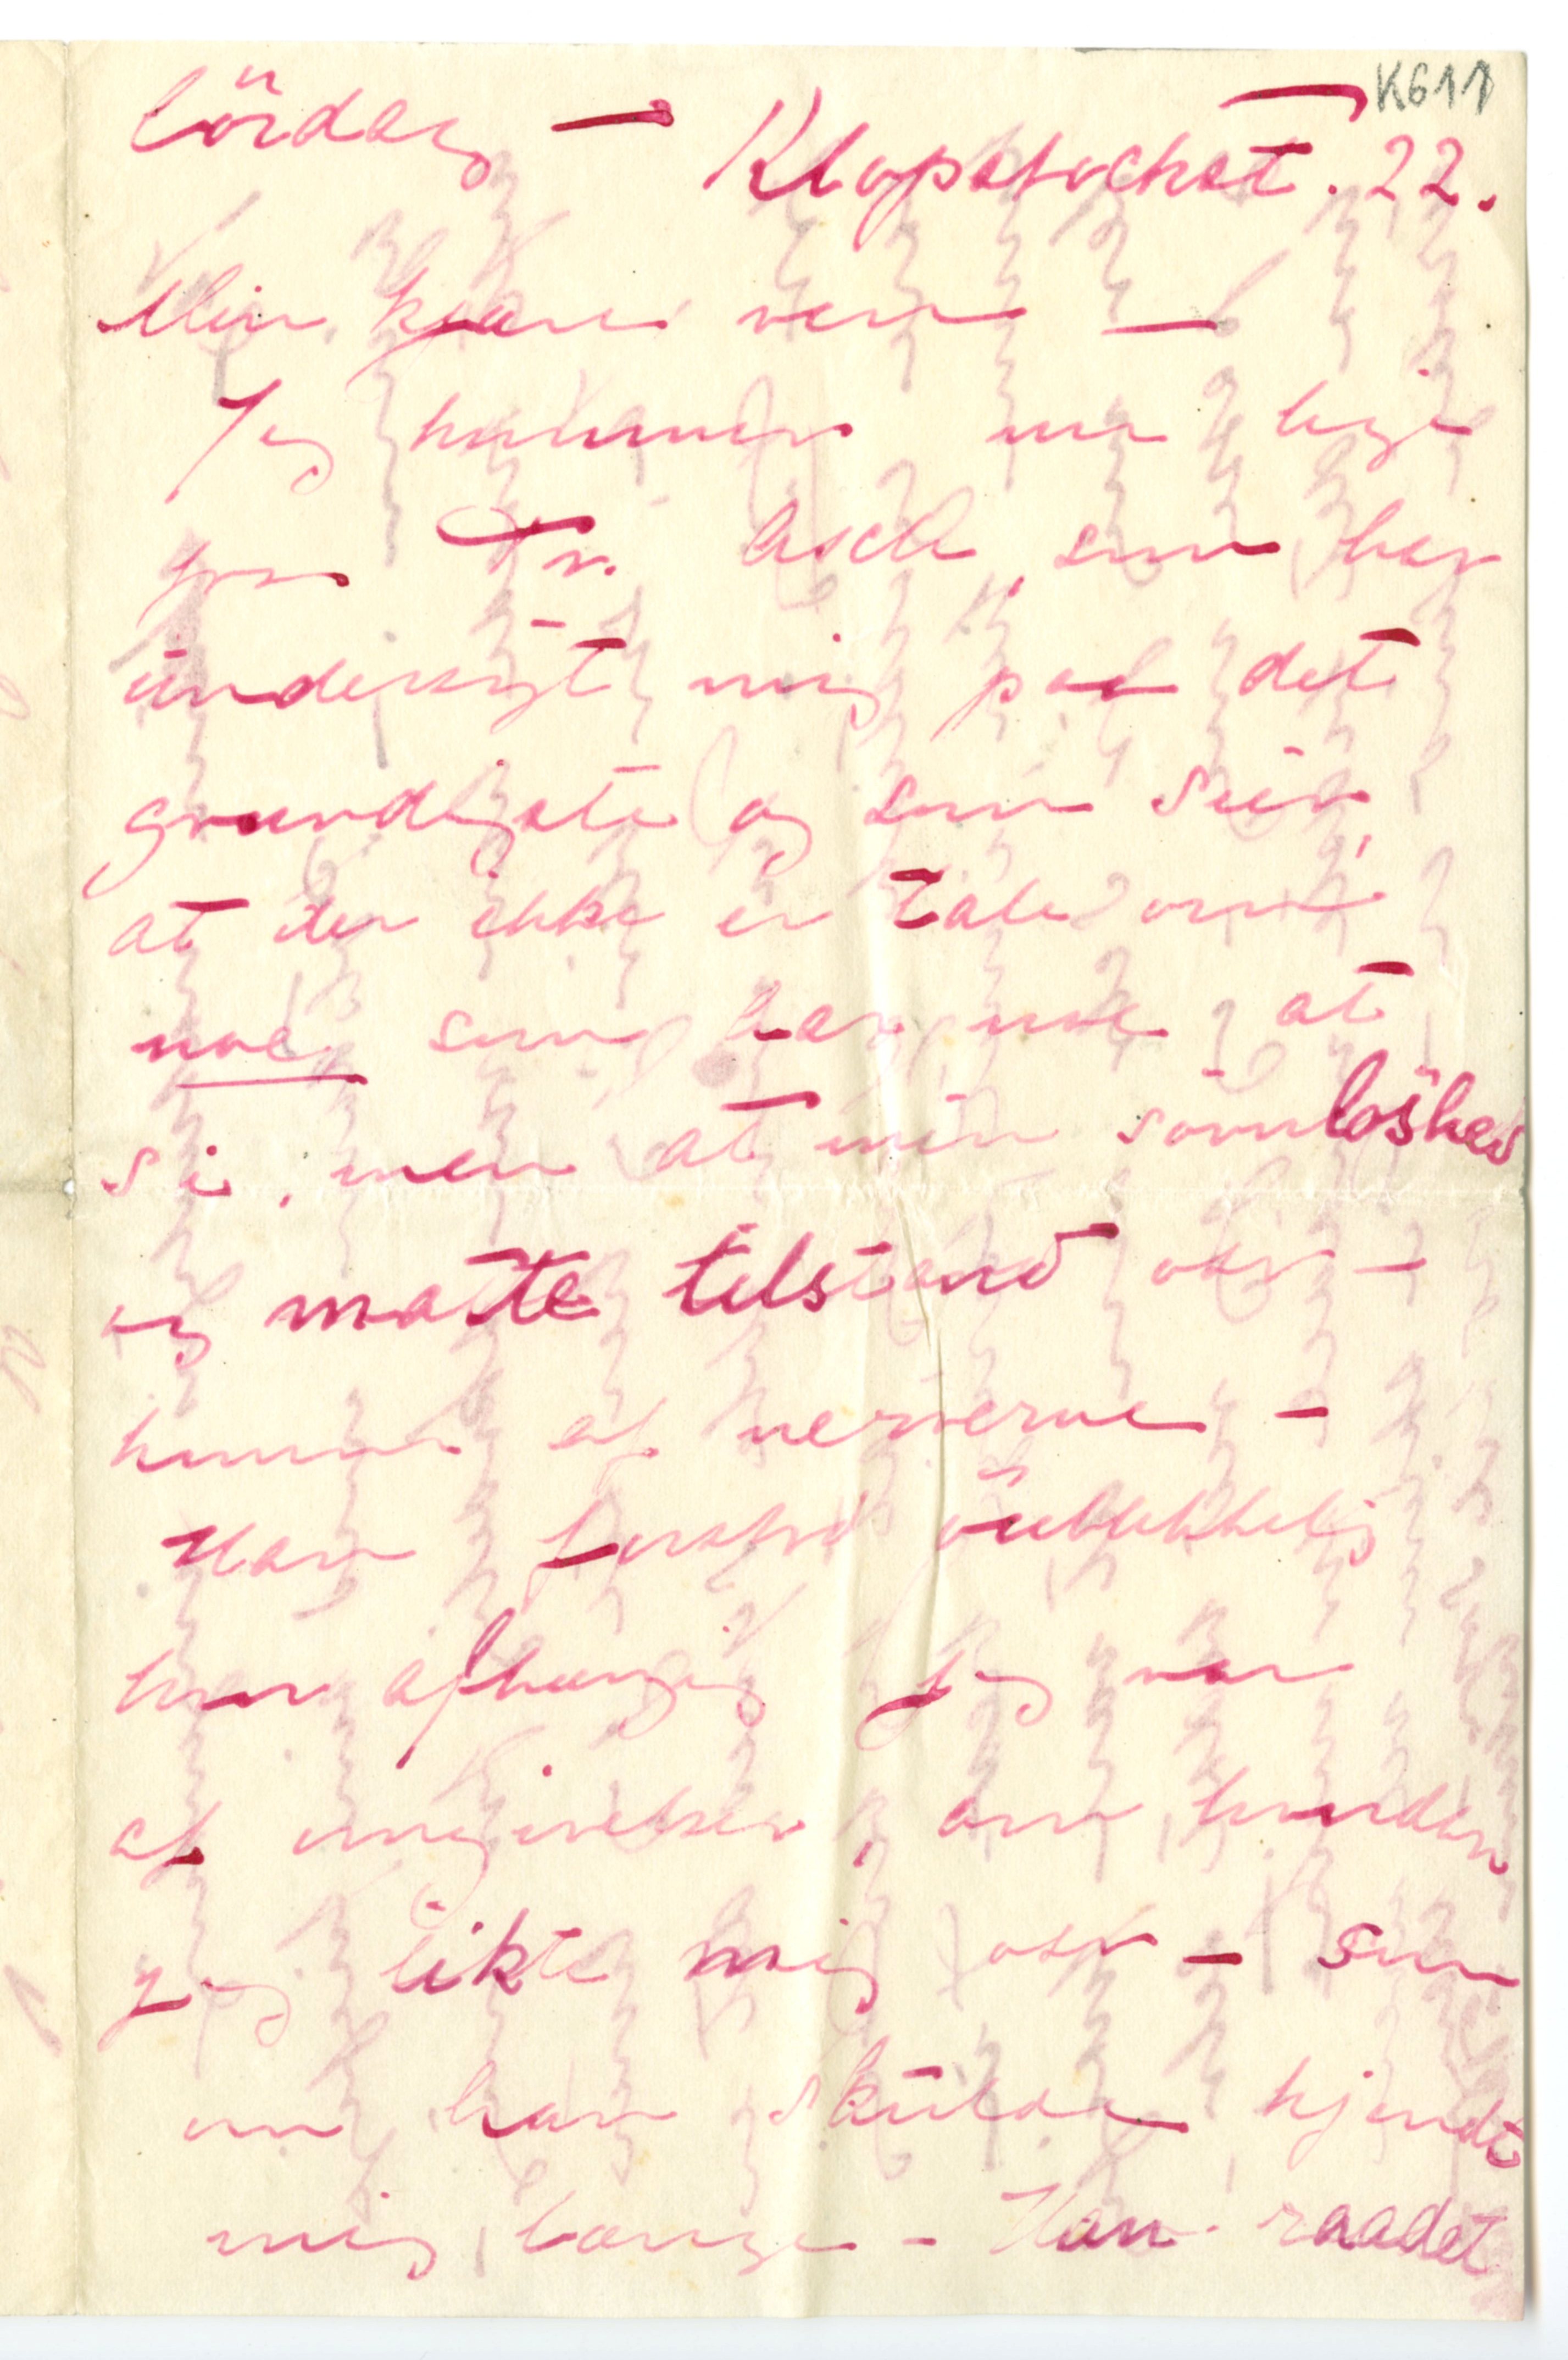 K611
Lördag — Klopstockst. 22.
Min kjære ven —
Jeg kommer nu lige
fra Dr. Asch som har
undersøgt mig paa det
grundigste og som sier,
at der ikke er tale om
noe som har noe at
si, men at min sövnlöshed
og matte tilstand
kommer af nerverne —
Han forstod öieblikkelig
hvor afhængig jeg var
af omgivelser, om hvordan
jeg likte mig osv — som
om han skulde kjendt
mig længe — Han raadet